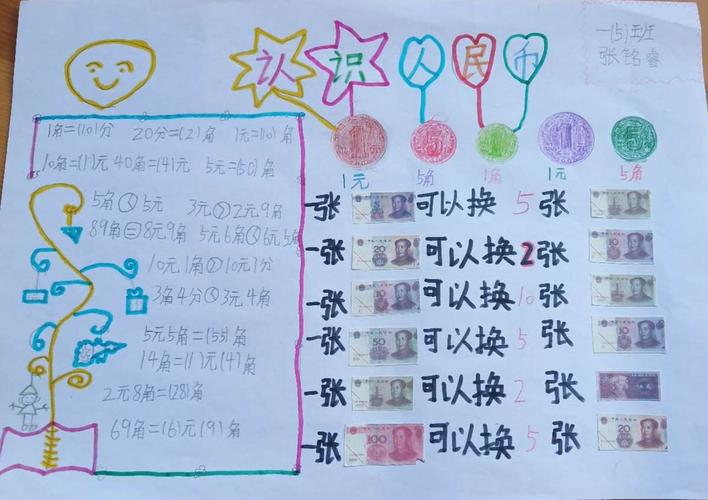 认识人民币
一(5)班
张铭睿
1角=(10)分 20分=(2)角 1元=(10)角
10角=(1)元 40角=(4)元 5元=(50)角
5角<5元 3元>2元9角
89角=8元9角 5元6角<6元5角
10元1角>10元1分
3角4分<3元4角
5元5角=(55)角
14角=(1)元(4)角
2元8角=(28)角
69角=(6)元(9)角
1 5 1 1 5
1元 5角 1角 1元 5角
一张 可以换5张
一张 20 可以换2张 10
一张 10 可以换10张
一张 50 可以换5张 10
一张 可以换2张
一张 100 可以换5张 20